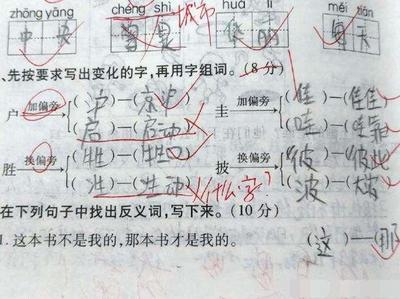 zhōng yāng chéng shì huá lì měi tiān
中央 城市 美 每天
、先按要求写出变化的字，再用字组词。（8分）
户 加偏旁 （沪）—（京沪） 圭 加偏旁 （佳）—（佳佳）
（启）—（启动） （哇）—（哇靠）
胜 换偏旁 （牲）—（牲口） 披 换偏旁 （彼）—（彼此）
（姓）—（ 动） 什么字 （波）—（ ）
在下列句子中找出反义词，写下来。（10分）
1. 这本书不是我的，那本书才是我的。 （这）—（那